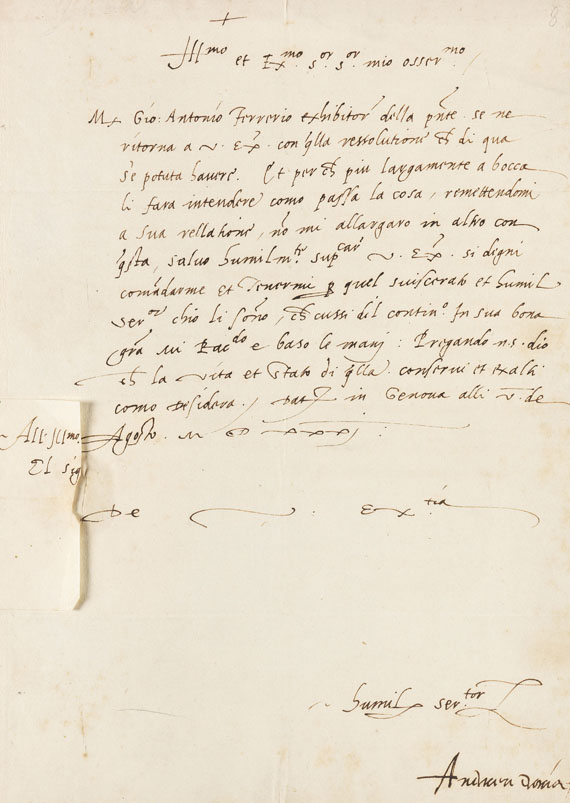 +
Ill^mo et Ex^mo s^or s^or mio osser^mo /
M. Gio: Antonio Ferrerio exhibitor della pnte se ne
ritorna a v. Ex. con qlla ressolutione ch di qua
s'e potuta havere. Et per ch piu largamente a bocca
li fara intendere como passa la cosa, remettendomi
a sua rellatione, nō mi allargaro in altro con
qsta, salvo humilm^te sup^car v. Ex. si digni
comādarme et tenermi p quel suiscerato et humil
ser^or chio li sono, ch cussi dil contin^o In sua bona
gra mi Rac^do e baso le mani: Pregando n.s. dio
ch la vita et stato di qlla conservi et exalti
como desidera. / Dat in Genova alli v. de
Agosto. M D XXXj.
All Ill^mo
El sig
De V. Ex^tia
humil ser^tor
Andrea Doria
8